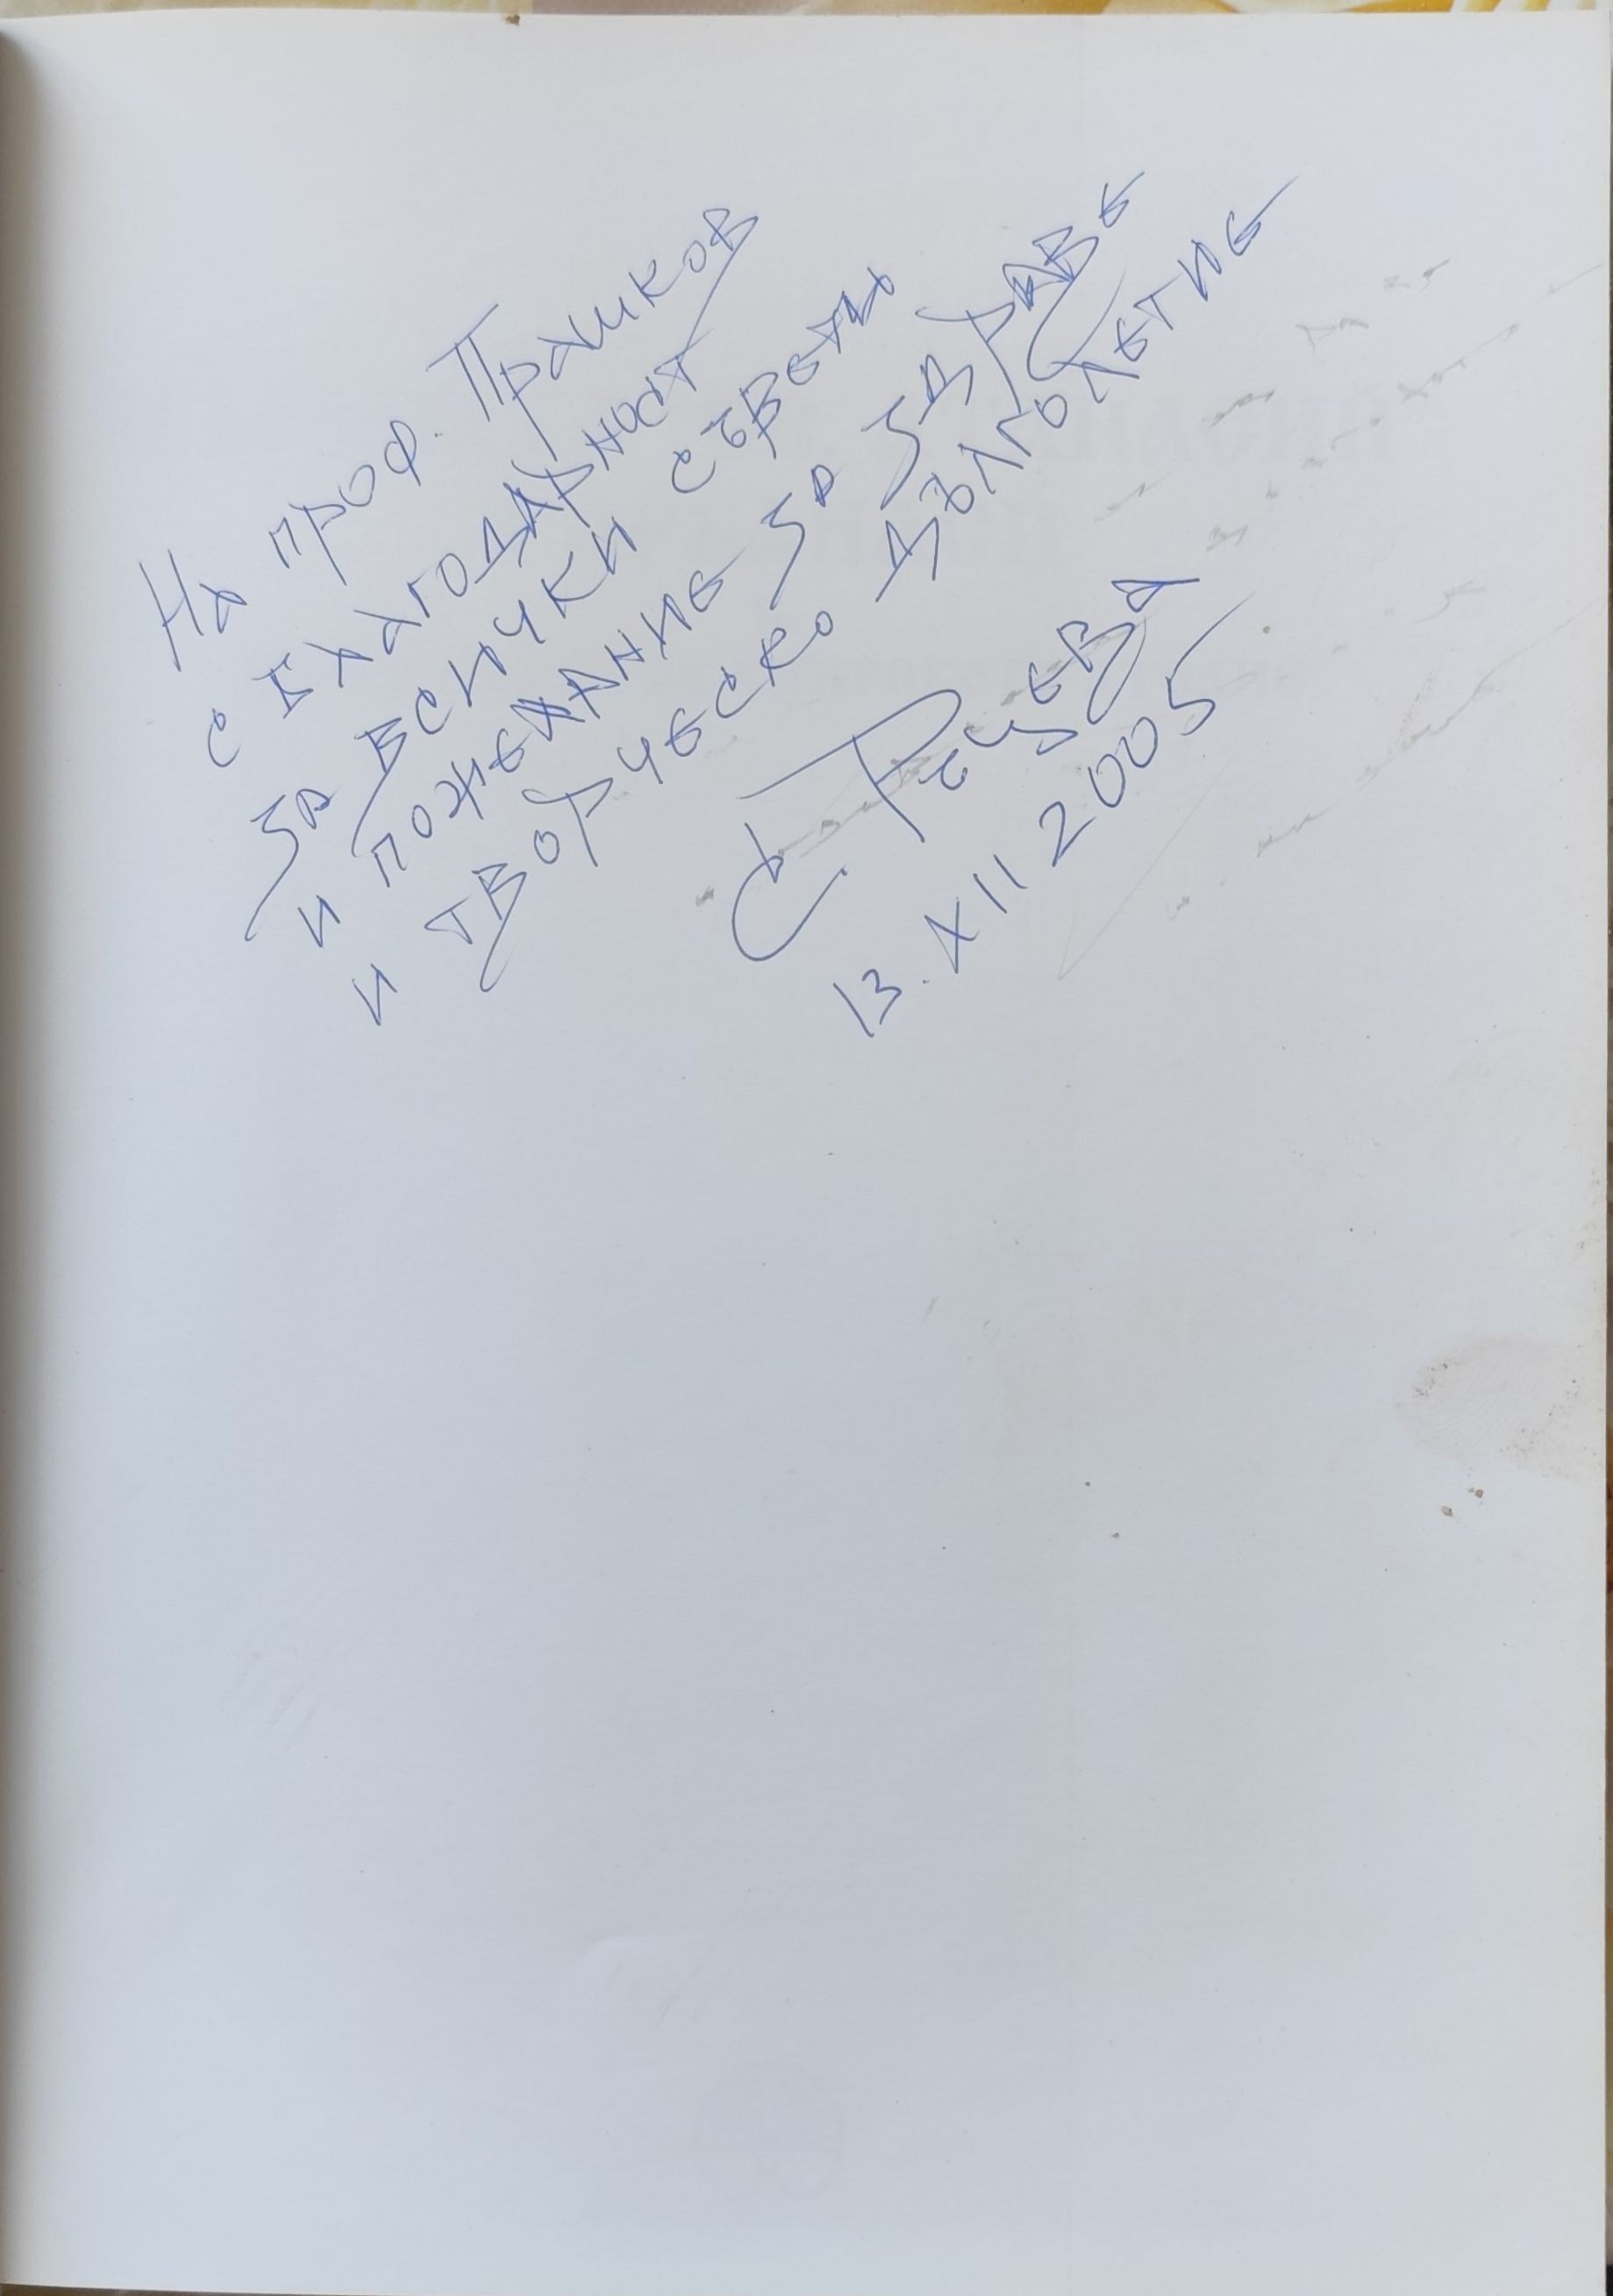 На проф. Прашков
с благодарност
за всички съвети
и пожелание за здраве
и творческо дълголетие
С. Рецева
13. XII 2005